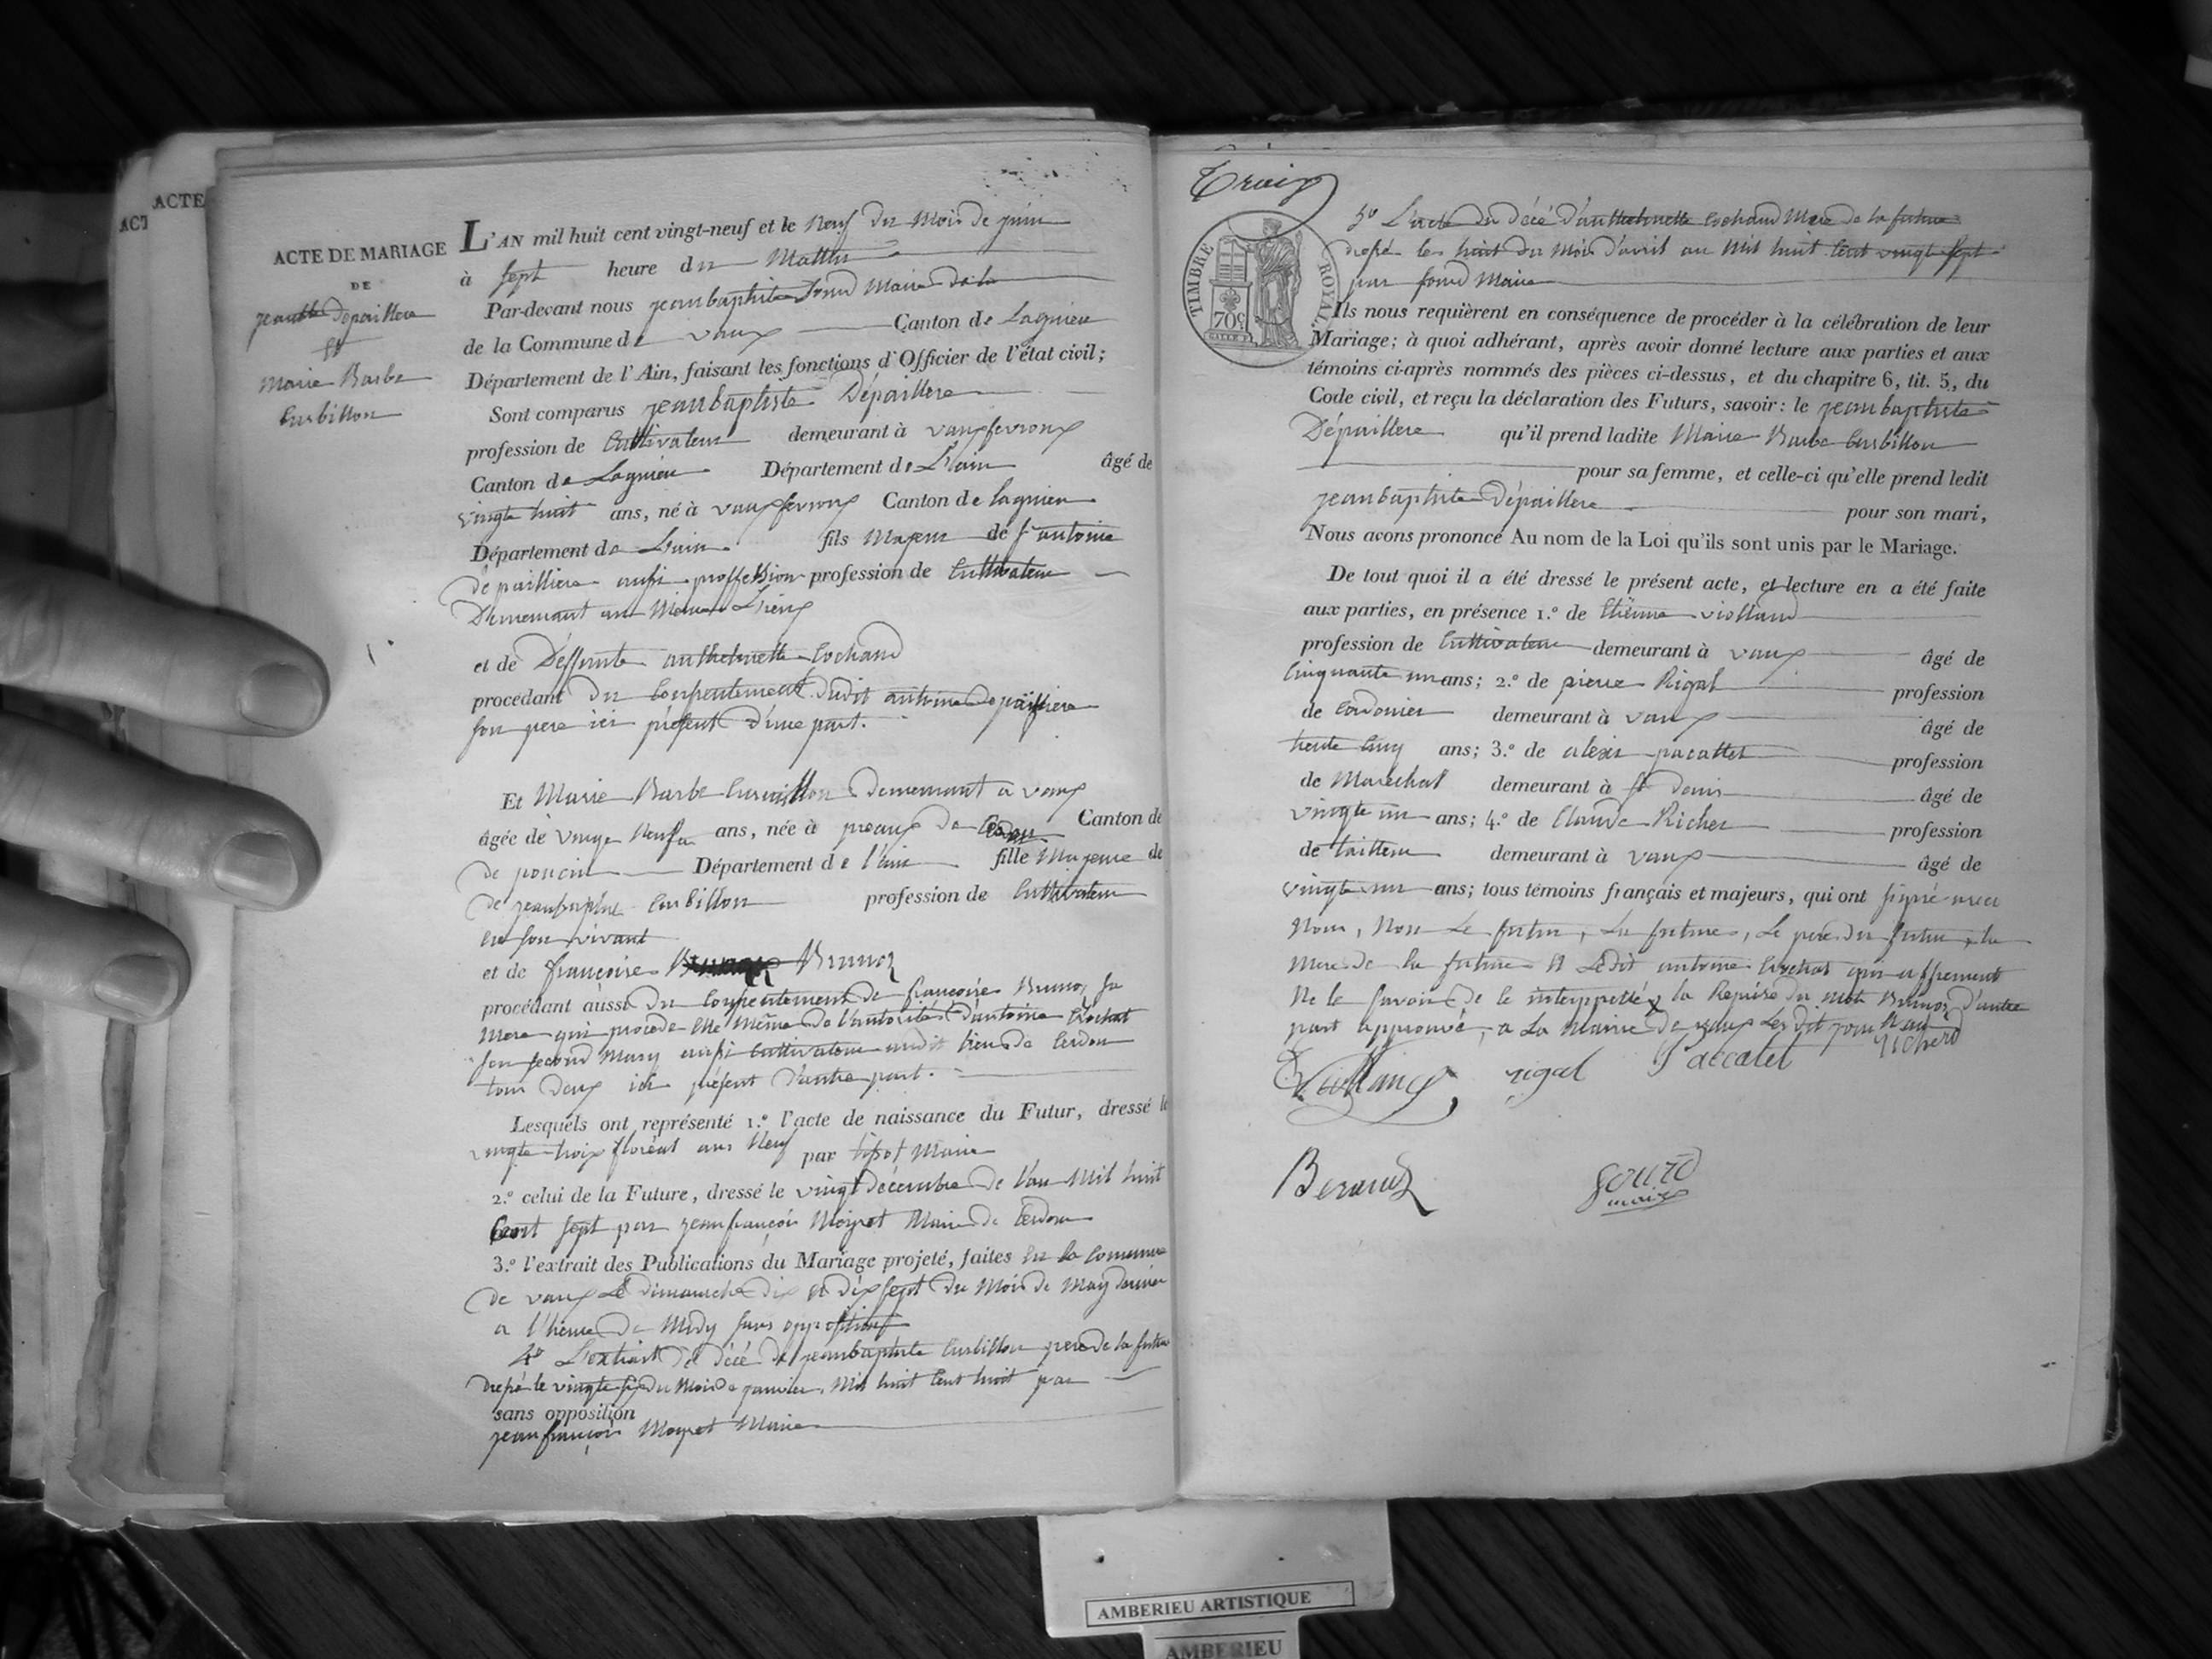 ACTE
ACT
ACTE DE MARIAGE
DE
jean bte Depaillere
et
Marie Barbe
Curbillon
L'AN mil huit cent vingt-neuf et le Neuf du Mois de juin
à sept heure du Mattin
Par-devant nous jeanbaptiste Maire de la
de la Commune de vaux Canton de Lagnieu
Département de l'Ain, faisant les fonctions d'Officier de l'état civil;
Sont comparus jeanbaptiste Dépaillere
profession de Cultivateur demeurant à vauxfevroux
Canton de Lagnieu Département de L'ain âgé de
vingte huit ans, né à vauxfevroux Canton de lagnieu
Département de L'ain fils Majeur de antoine
depailliere profession de Cultivateur
Demeurant au Même Lieux
et de Deffunte anthelmette Cochand
procédant du Consentement dudit antoine Depailliere
son pere ici présent d'une part.
Et Marie Barbe Demeurant a vaux
âgée de vingt Neuf ans, née à preaux de Cerdon Canton de
De poncin Département de l'ain fille Majeure de
De jeanbaptiste Curbillon profession de Cultivateur
en son vivant
et de françoise
procédant aussi du Consentement de françoise sa
Mere qui procede Elle Même de l'autorité d'antoine Crochat
son second Mary aussi Cultivateur audit lieu de Cerdon
tous deux ici présent D'autre part.
Lesquels ont représenté 1.º l'acte de naissance du Futur, dressé le
vingte trois floréal ans Neuf par Maire
2.º celui de la Future, dressé le vingt décembre de l'an Mil huit
Cent sept par jeanfrançois Maire de Cerdon
3.º l'extrait des Publications du Mariage projeté, faites En la Commune
de vaux Le dimanche dix et dix sept du Mois de May dernier
a l'heure de Midy sans opposition
4º L'extrait de décé de jeanbaptiste Curbillon pere de la future
dressé le du Mois de janvier Mil huit Cent huit par
sans opposition
jeanfrançois Maire
Troix
TIMBRE ROYAL
70c
5º L'acte du décé d'anthelmette Cochand Mere de la future
dressé le huit du Mois d'avril an Mil huit Cent vingt sept
par Maire
Ils nous requièrent en conséquence de procéder à la célébration de leur
Mariage; à quoi adhérant, après avoir donné lecture aux parties et aux
témoins ci-après nommés des pièces ci-dessus, et du chapitre 6, tit. 5, du
Code civil, et reçu la déclaration des Futurs, savoir: le jeanbaptiste
Dépaillere qu'il prend ladite Marie Barbe Curbillon
pour sa femme, et celle-ci qu'elle prend ledit
jeanbaptiste Dépaillere pour son mari,
Nous avons prononcé Au nom de la Loi qu'ils sont unis par le Mariage.
De tout quoi il a été dressé le présent acte, et lecture en a été faite
aux parties, en présence 1.º de Etienne violland
profession de Cultivateur demeurant à vaux âgé de
Cinquante un ans; 2.º de pierre Rigal profession
de Cordonier demeurant à vaux âgé de
trente Cinq ans; 3.º de alexis pacallet profession
de Marechal demeurant à st Denis âgé de
vingte un ans; 4.º de Claude Richer profession
de tailleur demeurant à vaux âgé de
vingte un ans; tous témoins français et majeurs, qui ont signé avec
Nous, Non Le futur, La future, Le pere du futur, la
Mere de la future et Ledit antoine Crochat qui
Ne le savoir de le la Reprise du Mot d'autre
part approuvé, a La Mairie de vaux Les dit jour et an
Violland rigal Paccalet richerd
maire
AMBERIEU ARTISTIQUE
AMBERIEU